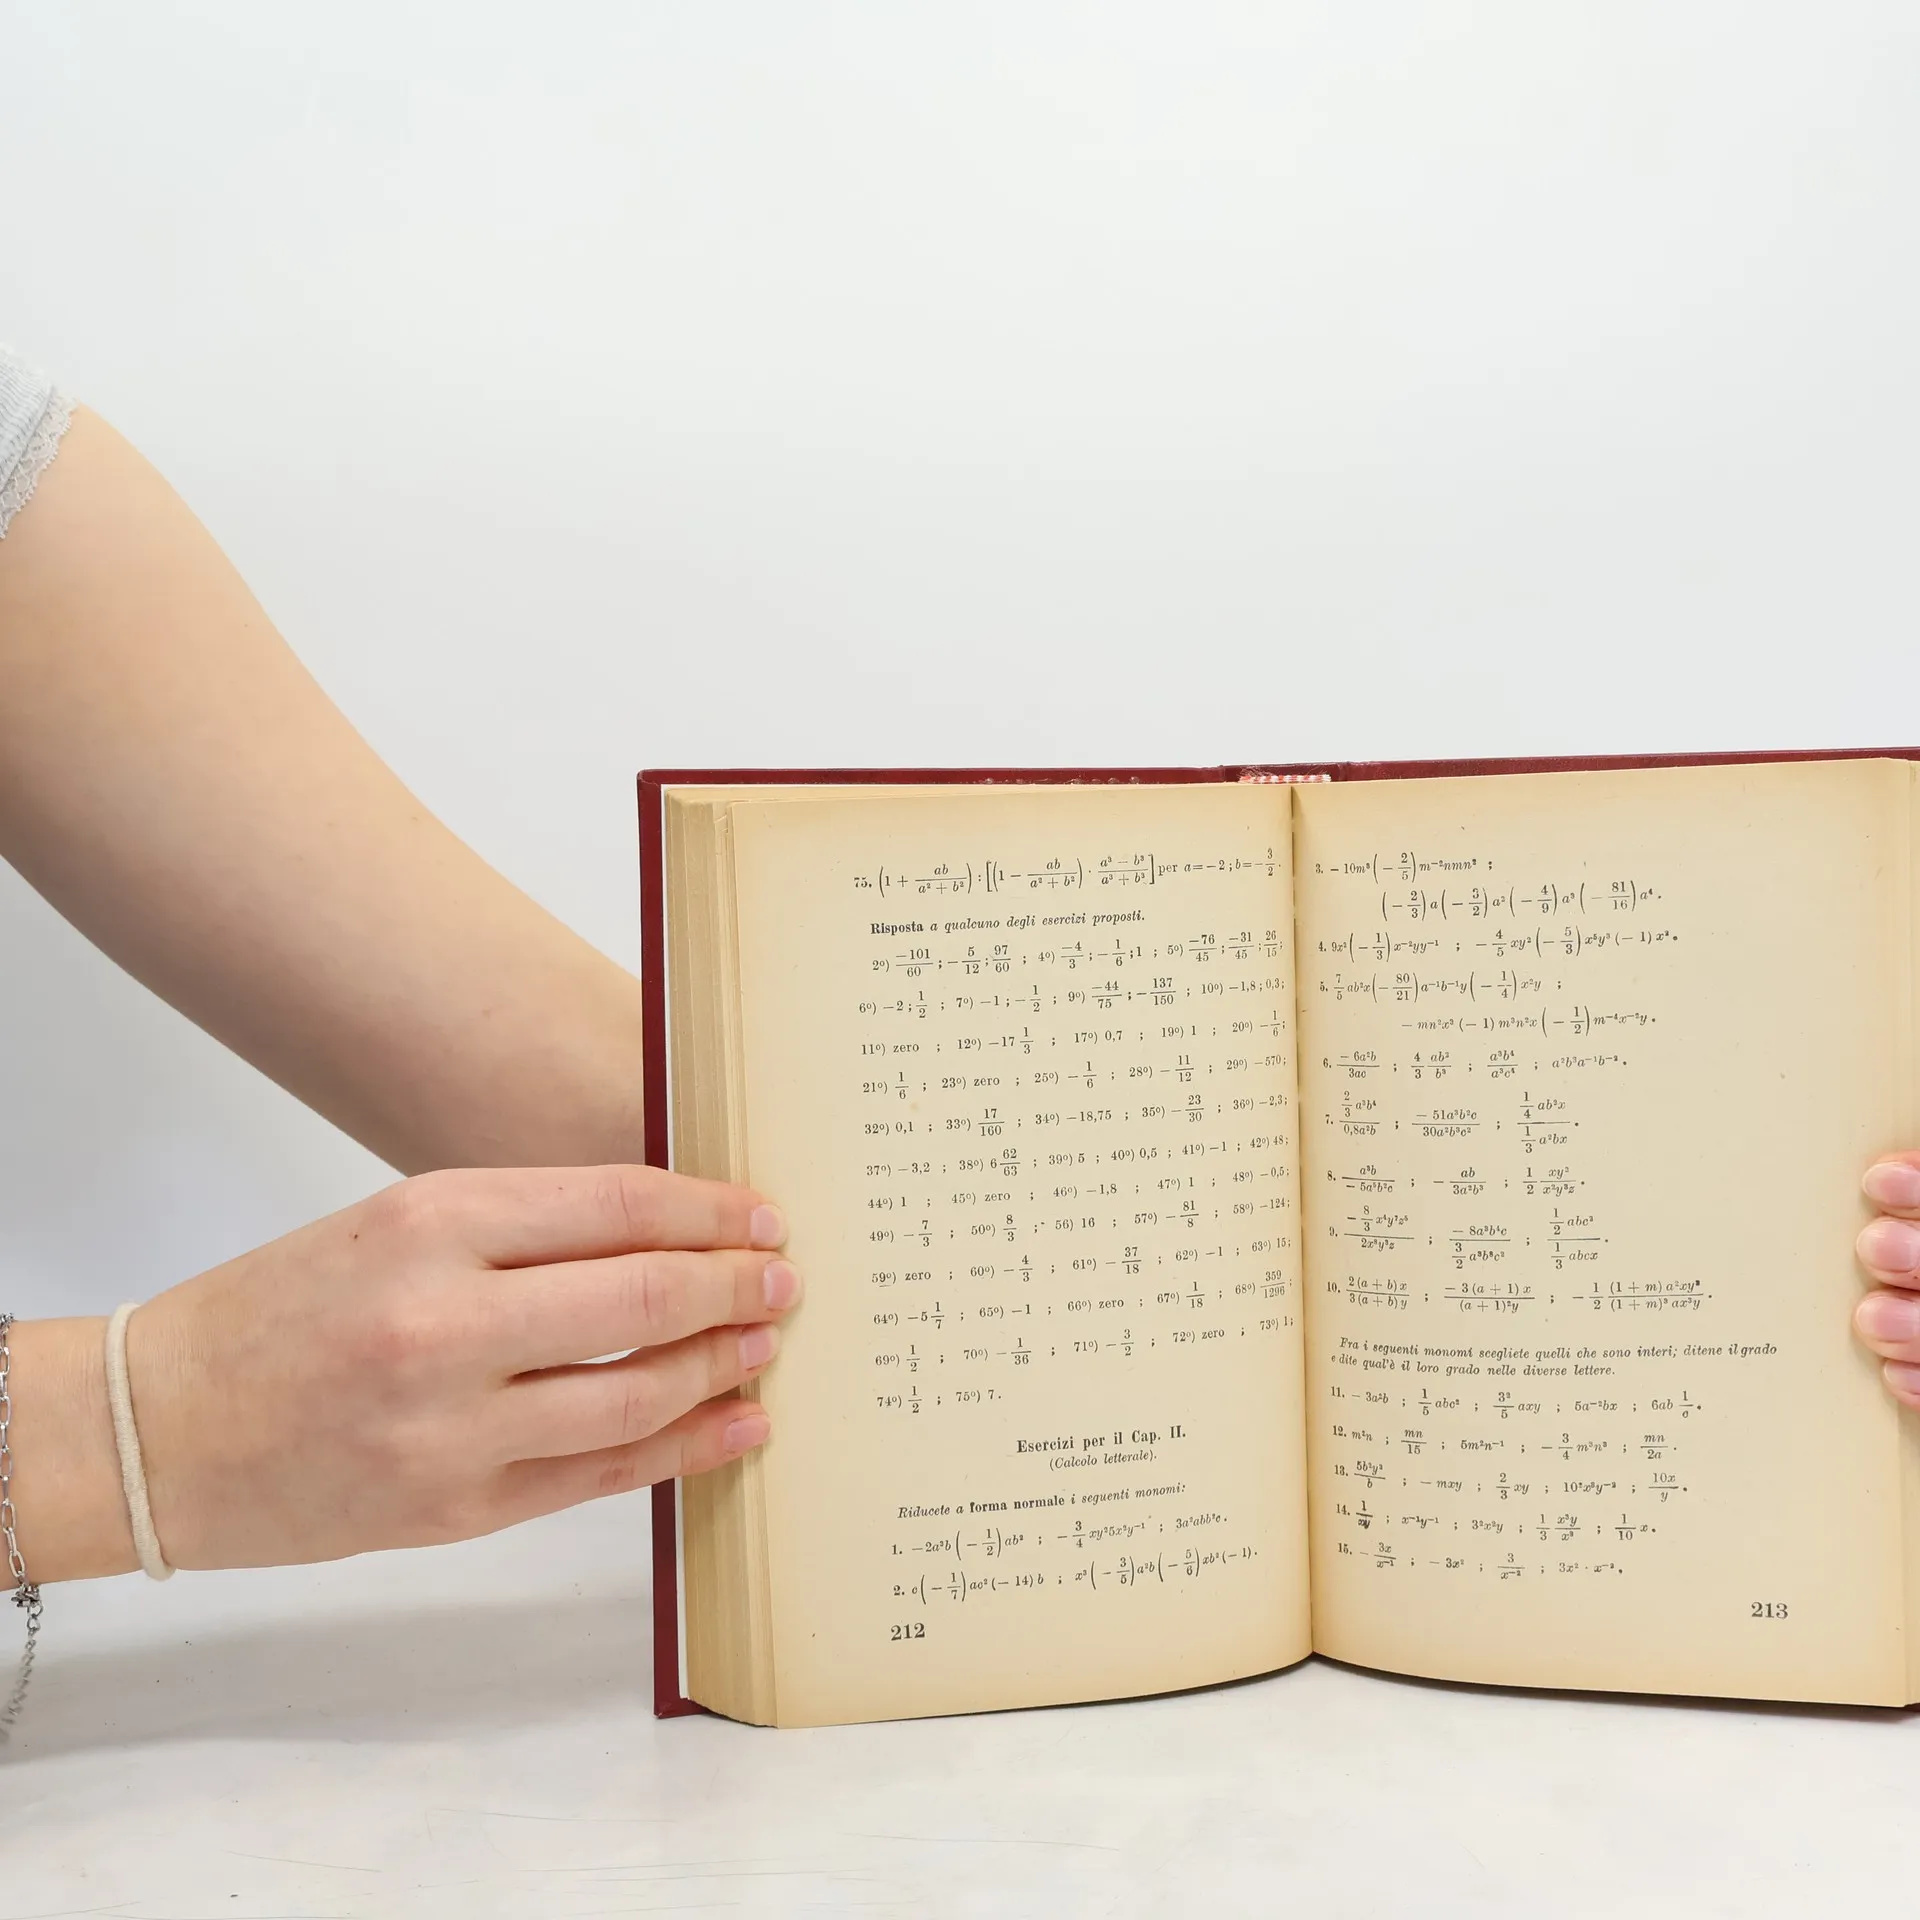 75. (1 + ab/(a² + b²)) : [(1 − ab/(a² + b²)) · (a³ − b³)/(a³ + b³)] per a = −2 ; b = −3/2.
Risposta a qualcuno degli esercizi proposti.
2º) −101/60 ; −5/12 ; 97/60 ; 4º) −4/3 ; −1/6 ; 1 ; 5º) −76/45 ; −31/45 ; 26/15 ;
6º) −2 ; 1/2 ; 7º) −1 ; −1/2 ; 9º) −44/75 ; −137/150 ; 10º) −1,8 ; 0,3 ;
11º) zero ; 12º) −17 1/3 ; 17º) 0,7 ; 19º) 1 ; 20º) −1/6 ;
21º) 1/6 ; 23º) zero ; 25º) −1/6 ; 28º) −11/12 ; 29º) −570 ;
32º) 0,1 ; 33º) 17/160 ; 34º) −18,75 ; 35º) −23/30 ; 36º) −2,3 ;
37º) −3,2 ; 38º) 6 62/63 ; 39º) 5 ; 40º) 0,5 ; 41º) −1 ; 42º) 48 ;
44º) 1 ; 45º) zero ; 46º) −1,8 ; 47º) 1 ; 48º) −0,5 ;
49º) −7/3 ; 50º) 8/3 ; 56) 16 ; 57º) −81/8 ; 58º) −124 ;
59º) zero ; 60º) −4/3 ; 61º) −37/18 ; 62º) −1 ; 63º) 15 ;
64º) −5 1/7 ; 65º) −1 ; 66º) zero ; 67º) 1/18 ; 68º) 359/1296 ;
69º) 1/2 ; 70º) −1/36 ; 71º) −3/2 ; 72º) zero ; 73º) 1 ;
74º) 1/2 ; 75º) 7.
Esercizi per il Cap. II.
(Calcolo letterale).
Riducete a forma normale i seguenti monomi:
1. −2a³b (−1/2) ab² ; −3/4 xy²5x²y⁻¹ ; 3a²abb²c.
2. c (−1/7) ac² (−14) b ; x³ (−3/5) a²b (−5/6) xb² (−1).
212
3. −10m³ (−2/5) m⁻²nmn² ;
(−2/3) a (−3/2) a² (−4/9) a³ (−81/16) a⁴.
4. 9x² (−1/3) x⁻²yy⁻¹ ; −4/5 xy² (−5/3) x⁵y³ (−1) x².
5. 7/5 ab²x (−80/21) a⁻¹b⁻¹y (−1/4) x²y ;
− mn²x³ (−1) m³n²x (−1/2) m⁻⁴x⁻²y.
6. −6a²b/3ac ; 4/3 ab²/b³ ; a³b⁴/a³c⁴ ; a²b³a⁻¹b⁻².
7. 2/3 a³b⁴/0,8a²b ; −51a³b²c/30a²b³c² ; 1/4 ab²x/1/3 a²bx.
8. a³b/−5a⁵b²c ; −ab/3a²b³ ; 1/2 xy²/x²y³z.
9. −8/3 x⁴y⁷z⁵/2x⁸y³z ; −8a³b⁴c/3/2 a³b⁸c² ; 1/2 abc²/1/3 abcx.
10. 2 (a + b) x/3 (a + b) y ; −3 (a + 1) x/(a + 1)²y ; −1/2 (1 + m) a²xy²/(1 + m)³ ax³y.
Fra i seguenti monomi scegliete quelli che sono interi; ditene il grado
e dite qual'è il loro grado nelle diverse lettere.
11. −3a²b ; 1/5 abc² ; 3²/5 axy ; 5a⁻²bx ; 6ab 1/c.
12. m²n ; mn/15 ; 5m²n⁻¹ ; −3/4 m³n³ ; mn/2a.
13. 5b²y²/b ; −mxy ; 2/3 xy ; 10²x³y⁻² ; 10x/y.
14. 1/xy ; x⁻¹y⁻¹ ; 3²x²y ; 1/3 x³y/x³ ; 1/10 x.
15. −3x/x⁻¹ ; −3x² ; 3/x⁻² ; 3x² · x⁻².
213